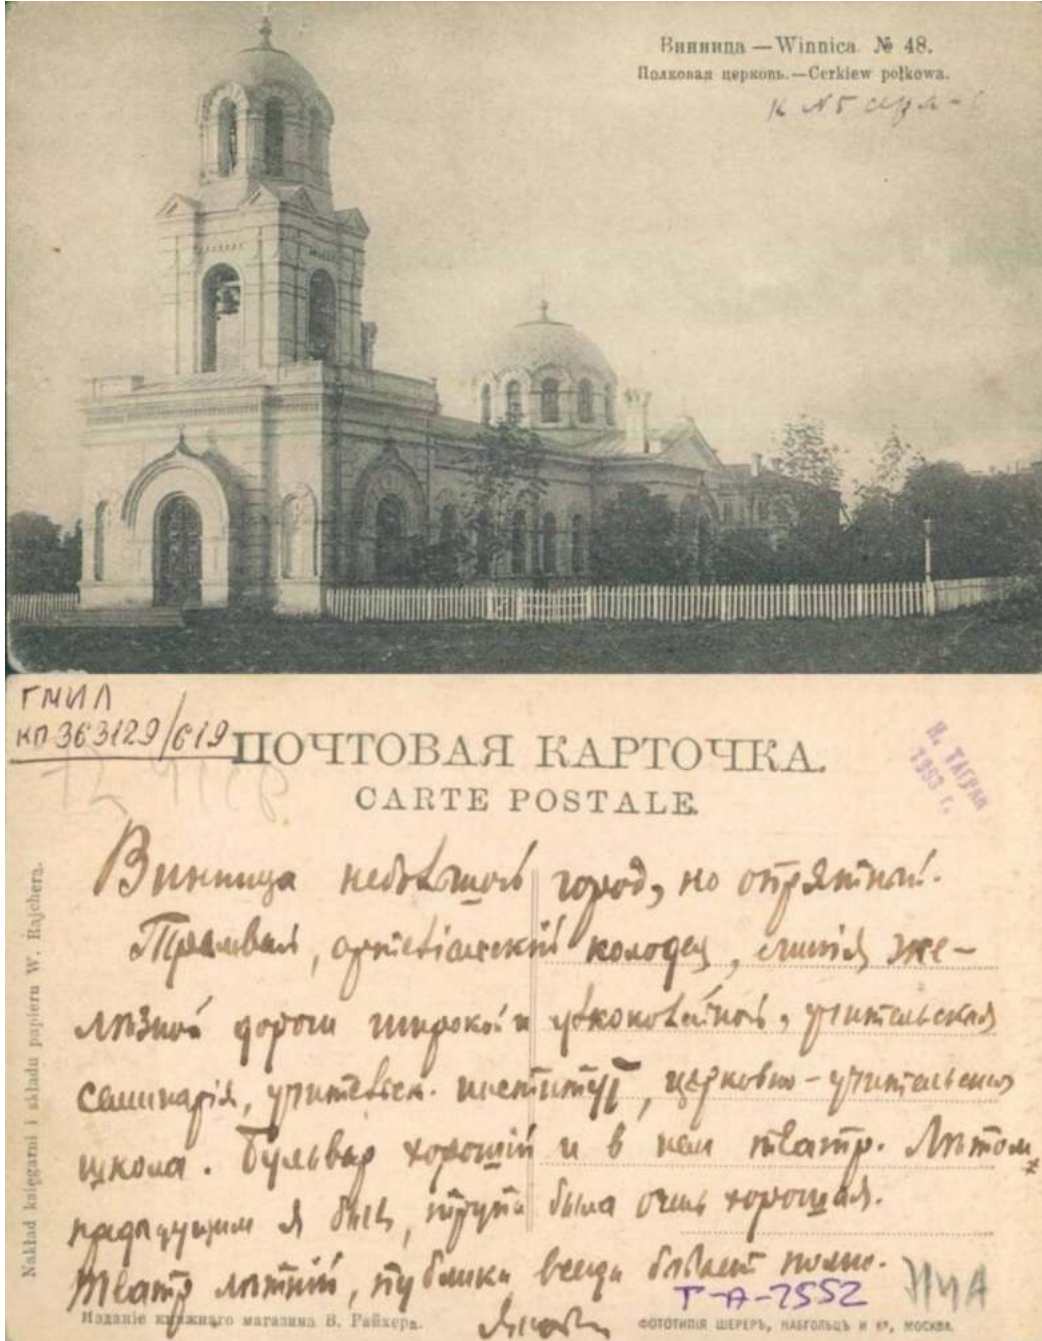 Винница — Winnica. № 48.
Полковая церковь. — Cerkiew połkowa.
к №5
ГМИЛ
КП 363129/619
ПОЧТОВАЯ КАРТОЧКА.
CARTE POSTALE.
Н. ТАГИЛ
1983 г.
Винница небольшой город, но опрятный.
Трамвай, артезіанскій колодец, линія же-
лѣзной дороги широкой и узкоколейной, учительская
семинарія, учительск. институт, церковно-учительская
школа. Бульвар хорошій и в нем театр. Лѣтом,
предыдущим я был, труппа была очень хорошая.
Театр лѣтній, публики всегда бывает полно.
Т-А-2552
Nakład księgarni i składu papieru W. Rajchera.
Изданіе книжнаго магазина В. Райхера.
ФОТОТИПІЯ ШЕРЕРЪ, НАБГОЛЬЦЪ И Кº, МОСКВА.